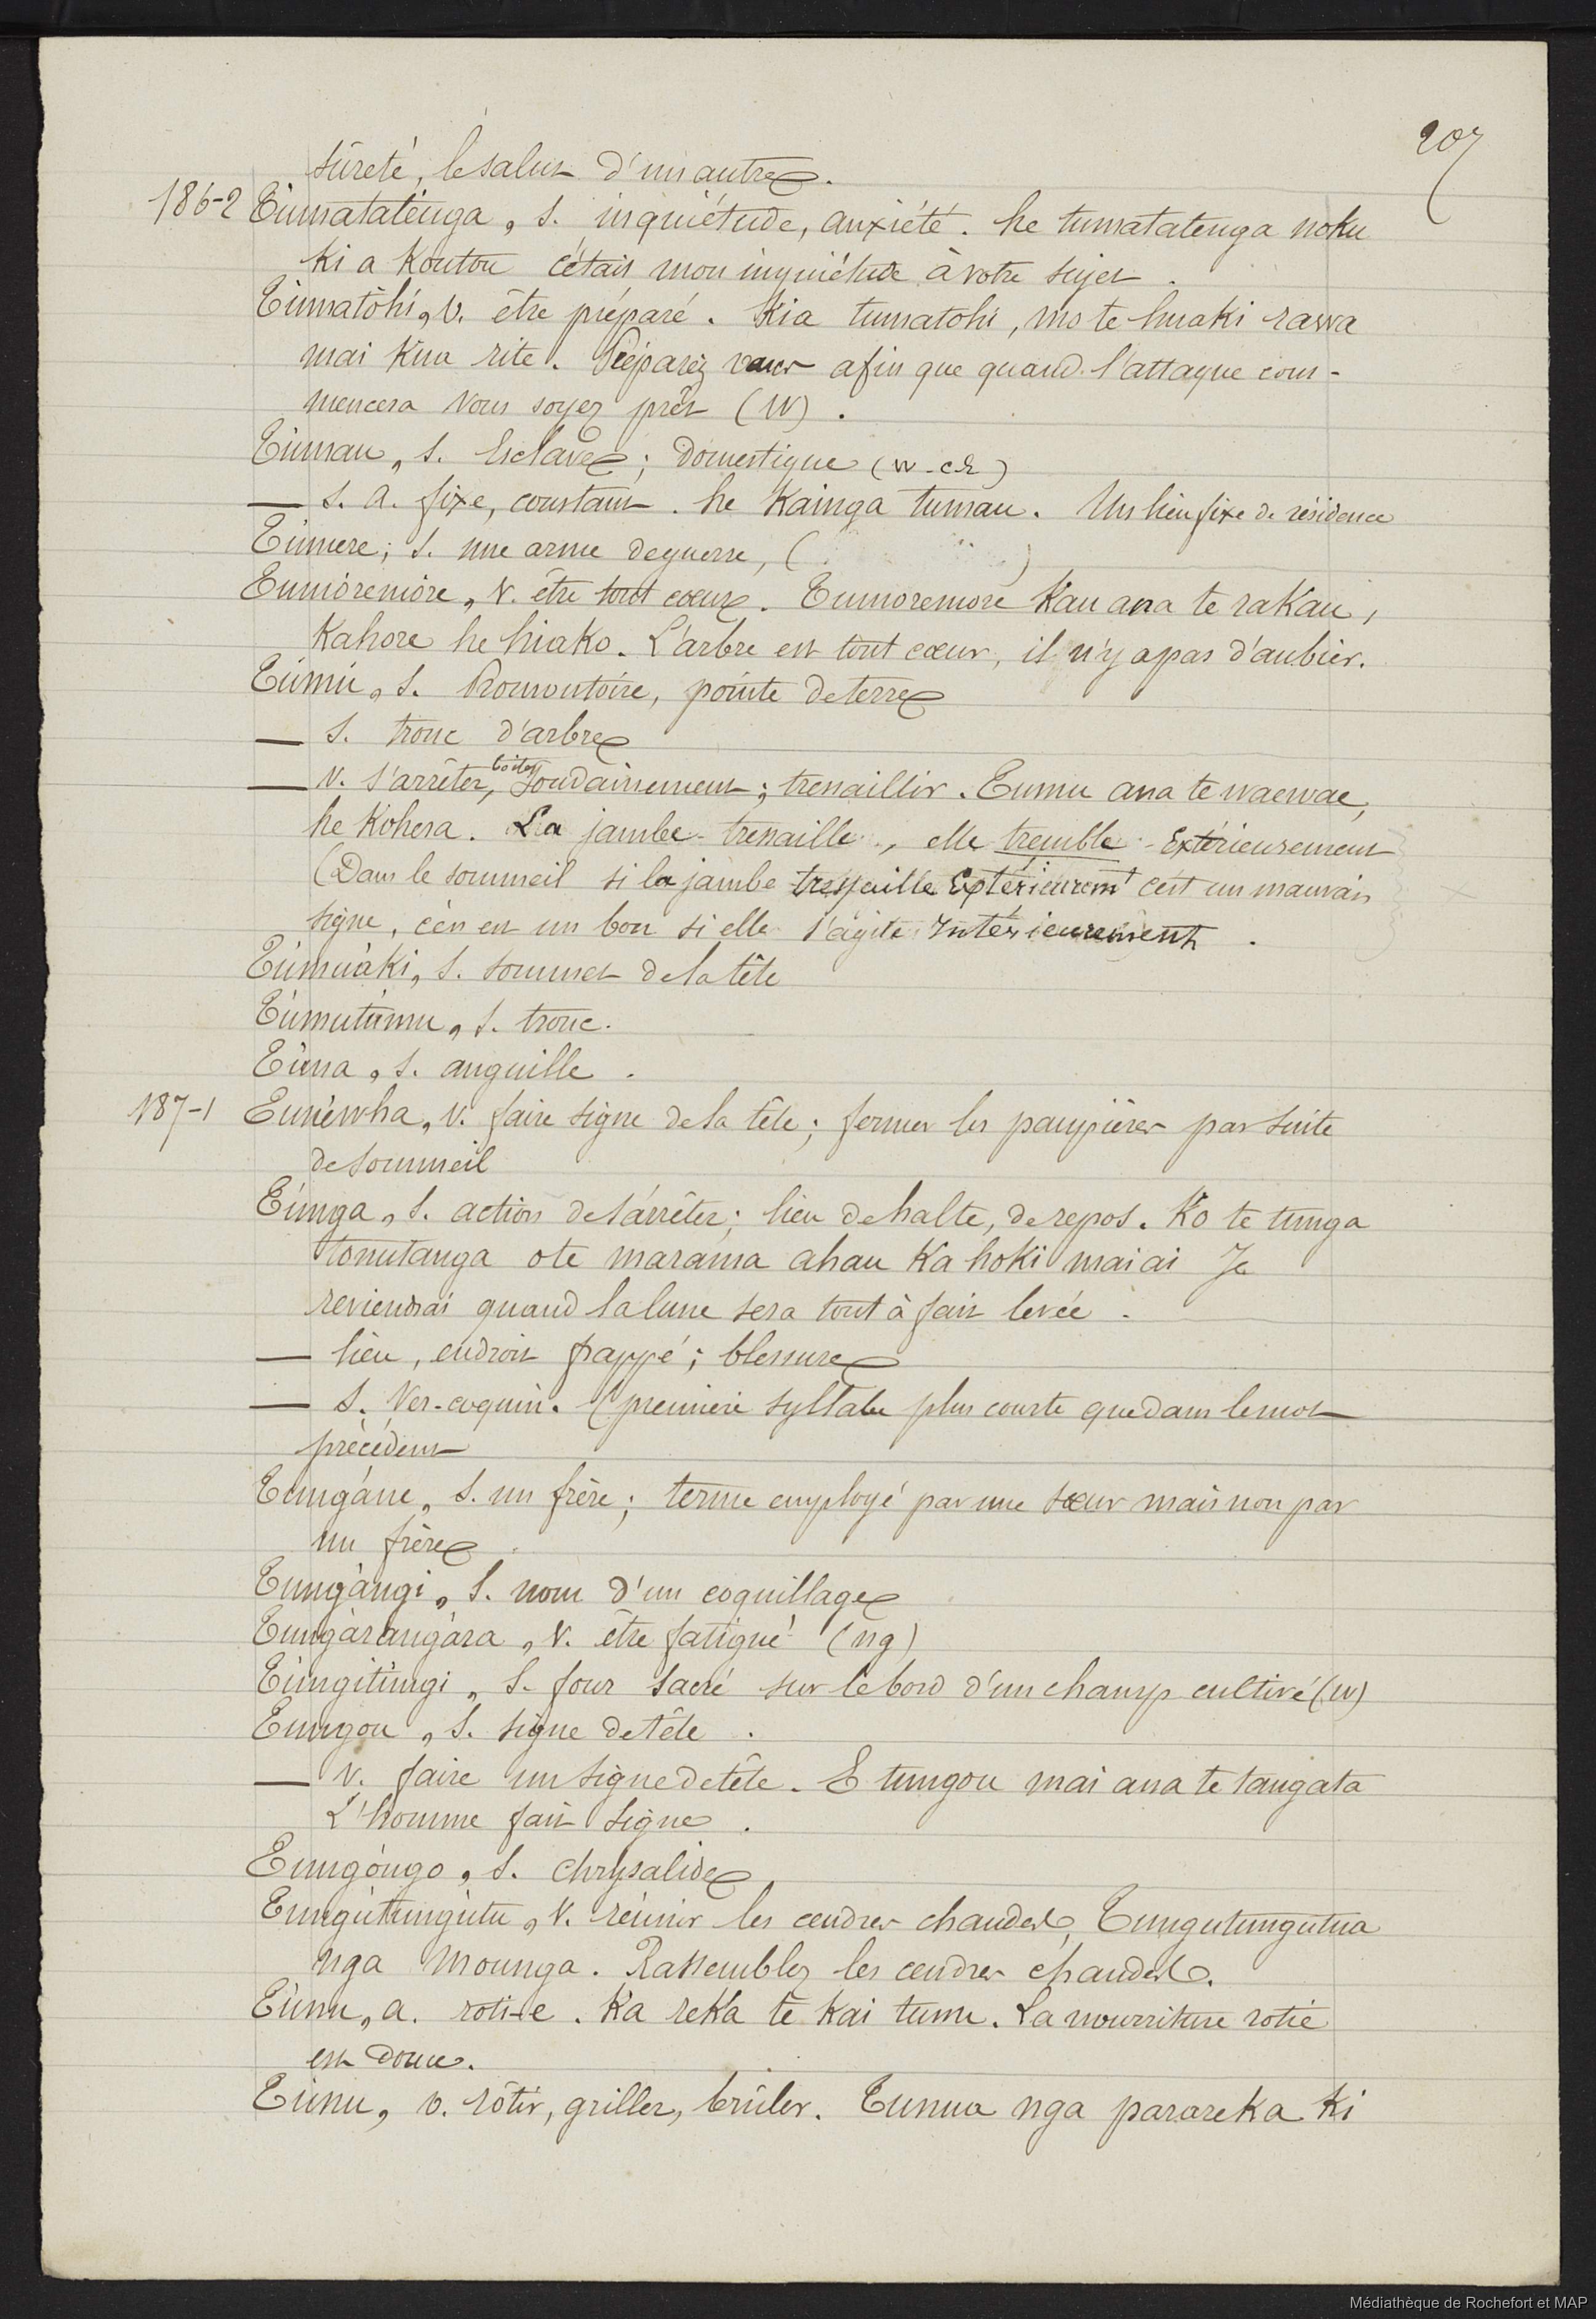 207
sûreté, le salut d'un autre.
186-2 Túmatatenga, s. inquiétude, anxiété. he tumatatenga noku
ki a koutou c'était mon inquiétude à votre sujet.
Túmatohi, v. être préparé. Kia tumatohi, mo te huaki rawa
mai kua rite. Préparez vous afin que quand l'attaque com-
mencera vous soyez prêt (W).
Túmau, s. Esclave; domestique (W-ch)
— s. a. fixe, constant. he kainga tumau. Un lieu fixe de résidence
Túmere; s. une arme de guerre, ( )
Tumòremòre, v. être tout cœur. Tumoremore kau ana te rakau,
kahore he hiako. L'arbre est tout cœur, il n'y a pas d'aubier.
Túmú, s. Promontoire, pointe de terre
— s. tronc d'arbre
— v. s'arrêter, boiter soudainement; tressaillir. Tumu ana te waewae,
he kohera. La jambe tressaille, elle tremble Extérieurement
(Dans le sommeil si la jambe tressaille Extérieurem^t c'est un mauvais
signe, c'en est un bon si elle s'agite Intérieurement.
Túmuàki, s. sommet de la tête
Túmutúmu, s. tronc.
Túna, s. anguille.
187-1 Tunéwha, v. faire signe de la tête; fermer les paupières par suite
de sommeil
Túnga, s. action de s'arrêter; lieu de halte, de repos. Ko te tunga
tonutanga o te marama ahau ka hoki mai ai Je
reviendrai quand la lune sera tout à fait levée.
— lieu, endroit frappé; blessure
— s. Ver-coquin. (première syllabe plus courte que dans le mot
précédent
Tungáne, s. un frère; terme employé par une sœur mais non par
un frère.
Tungàngi, s. nom d'un coquillage
Tungàrangàra, v. être fatigué (ng)
Túngitúngi, s. four sacré sur le bord d'un champ cultivé (W)
Tungou, s. signe de tête.
— v. faire un signe de tête. E tungou mai ana te tangata
L'homme fait signe.
Tungóngo, s. chrysalide
Tungútungútu, v. réunir les cendres chaudes, Tungutungutua
nga mounga. Rassemblez les cendres chaudes.
Túnu, a. roti-e. Ka reka te kai tunu. La nourriture rotie
est douce.
Túnu, v. rôtir, griller, brûler. Tunua nga parareka ki
Médiathèque de Rochefort et MAP